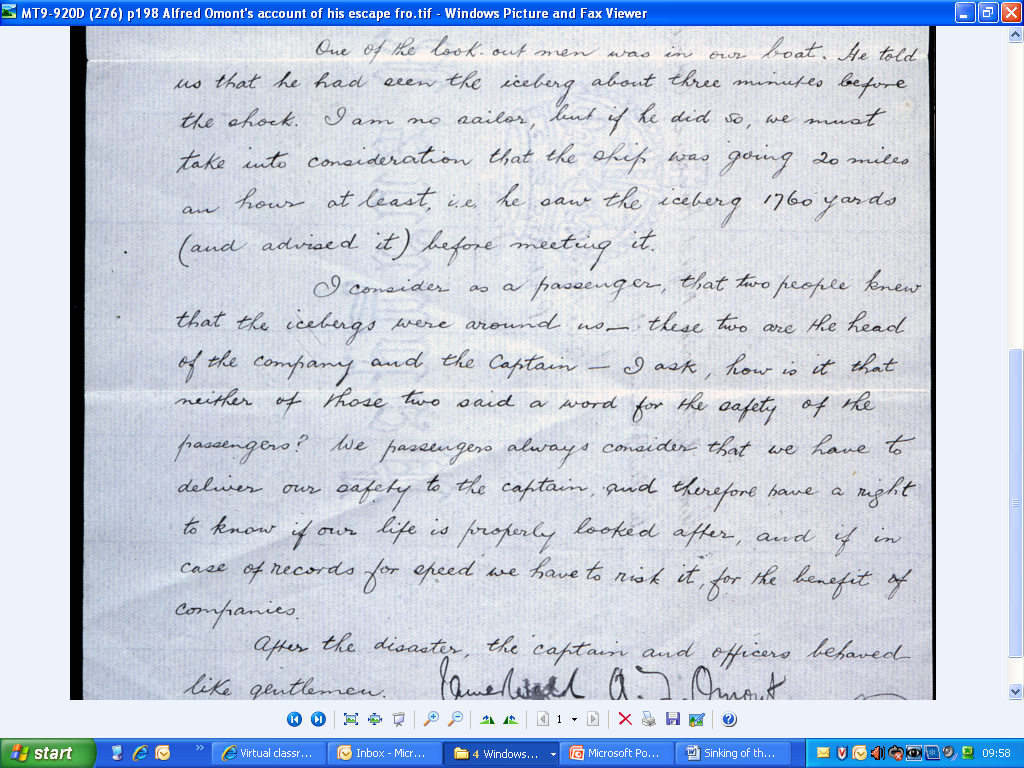 MT9-920D (276) p198 Alfred Omont's account of his escape fro.tif - Windows Picture and Fax Viewer
One of the look-out men was in our boat. He told
us that he had seen the iceberg about three minutes before
the shock. I am no sailor, but if he did so, we must
take into consideration that the ship was going 20 miles
an hour at least, i.e. he saw the iceberg 1760 yards
(and advised it) before meeting it.
I consider as a passenger, that two people knew
that the icebergs were around us— these two are the head
of the company and the Captain — I ask, how is it that
neither of those two said a word for the safety of the
passengers? We passengers always consider that we have to
deliver our safety to the captain, and therefore have a right
to know if our life is properly looked after, and if in
case of records for speed we have to risk it, for the benefit of
companies.
After the disaster, the captain and officers behaved
like gentlemen. A. J. Omont
1
start
Virtual classr...
Inbox - Micr...
4 Windows...
Microsoft Po...
Sinking of th...
09:58